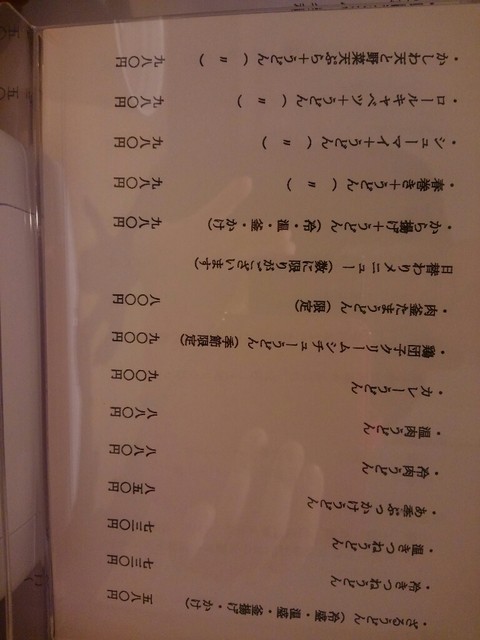 ・ざるうどん（冷盛・温盛・釜揚げ・かけ） 五八〇円
・冷きつねうどん 七三〇円
・温きつねうどん 七三〇円
・あ季ぶっかけうどん 八五〇円
・冷肉うどん 八八〇円
・温肉うどん 八八〇円
・カレーうどん 九〇〇円
・鶏団子クリームシチューうどん（季節限定） 九〇〇円
・肉釜たまうどん（限定） 八〇〇円
日替わりメニュー（数に限りがございます）
・から揚げ＋うどん（冷・温・釜・かけ） 九八〇円
・春巻き＋うどん（　〃　） 九八〇円
・シューマイ＋うどん（　〃　） 九八〇円
・ロールキャベツ＋うどん（　〃　） 九八〇円
・かしわ天と野菜天ぷら＋うどん（　〃　） 九八〇円